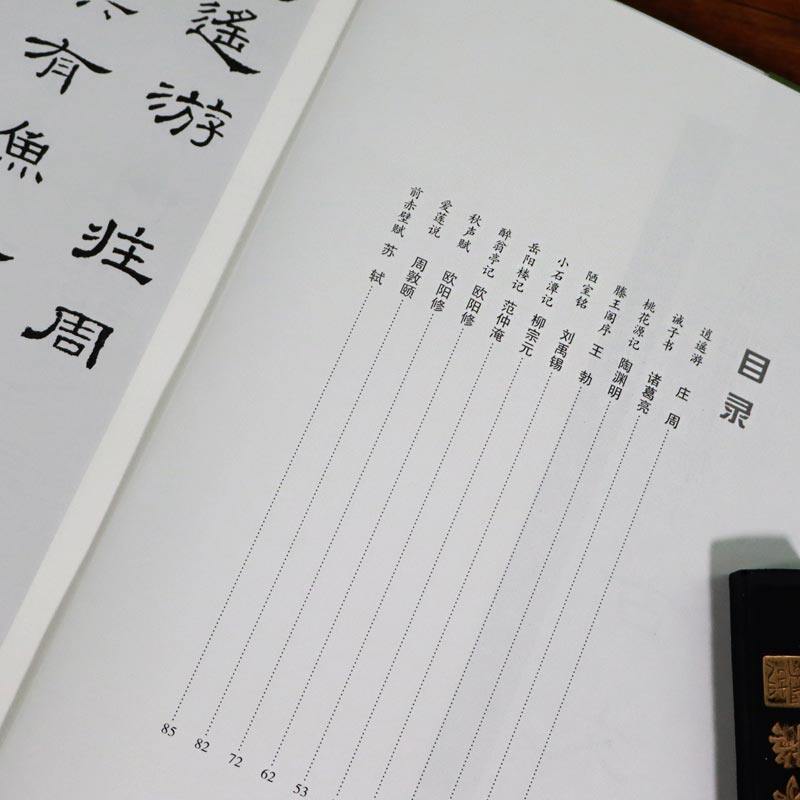 目录
逍遥游 庄周
诫子书 诸葛亮
桃花源记 陶渊明
滕王阁序 王勃
陋室铭 刘禹锡
小石潭记 柳宗元
岳阳楼记 范仲淹 53
醉翁亭记 欧阳修 62
秋声赋 欧阳修 72
爱莲说 周敦颐 82
前赤壁赋 苏轼 85
遙游 庄周
有魚